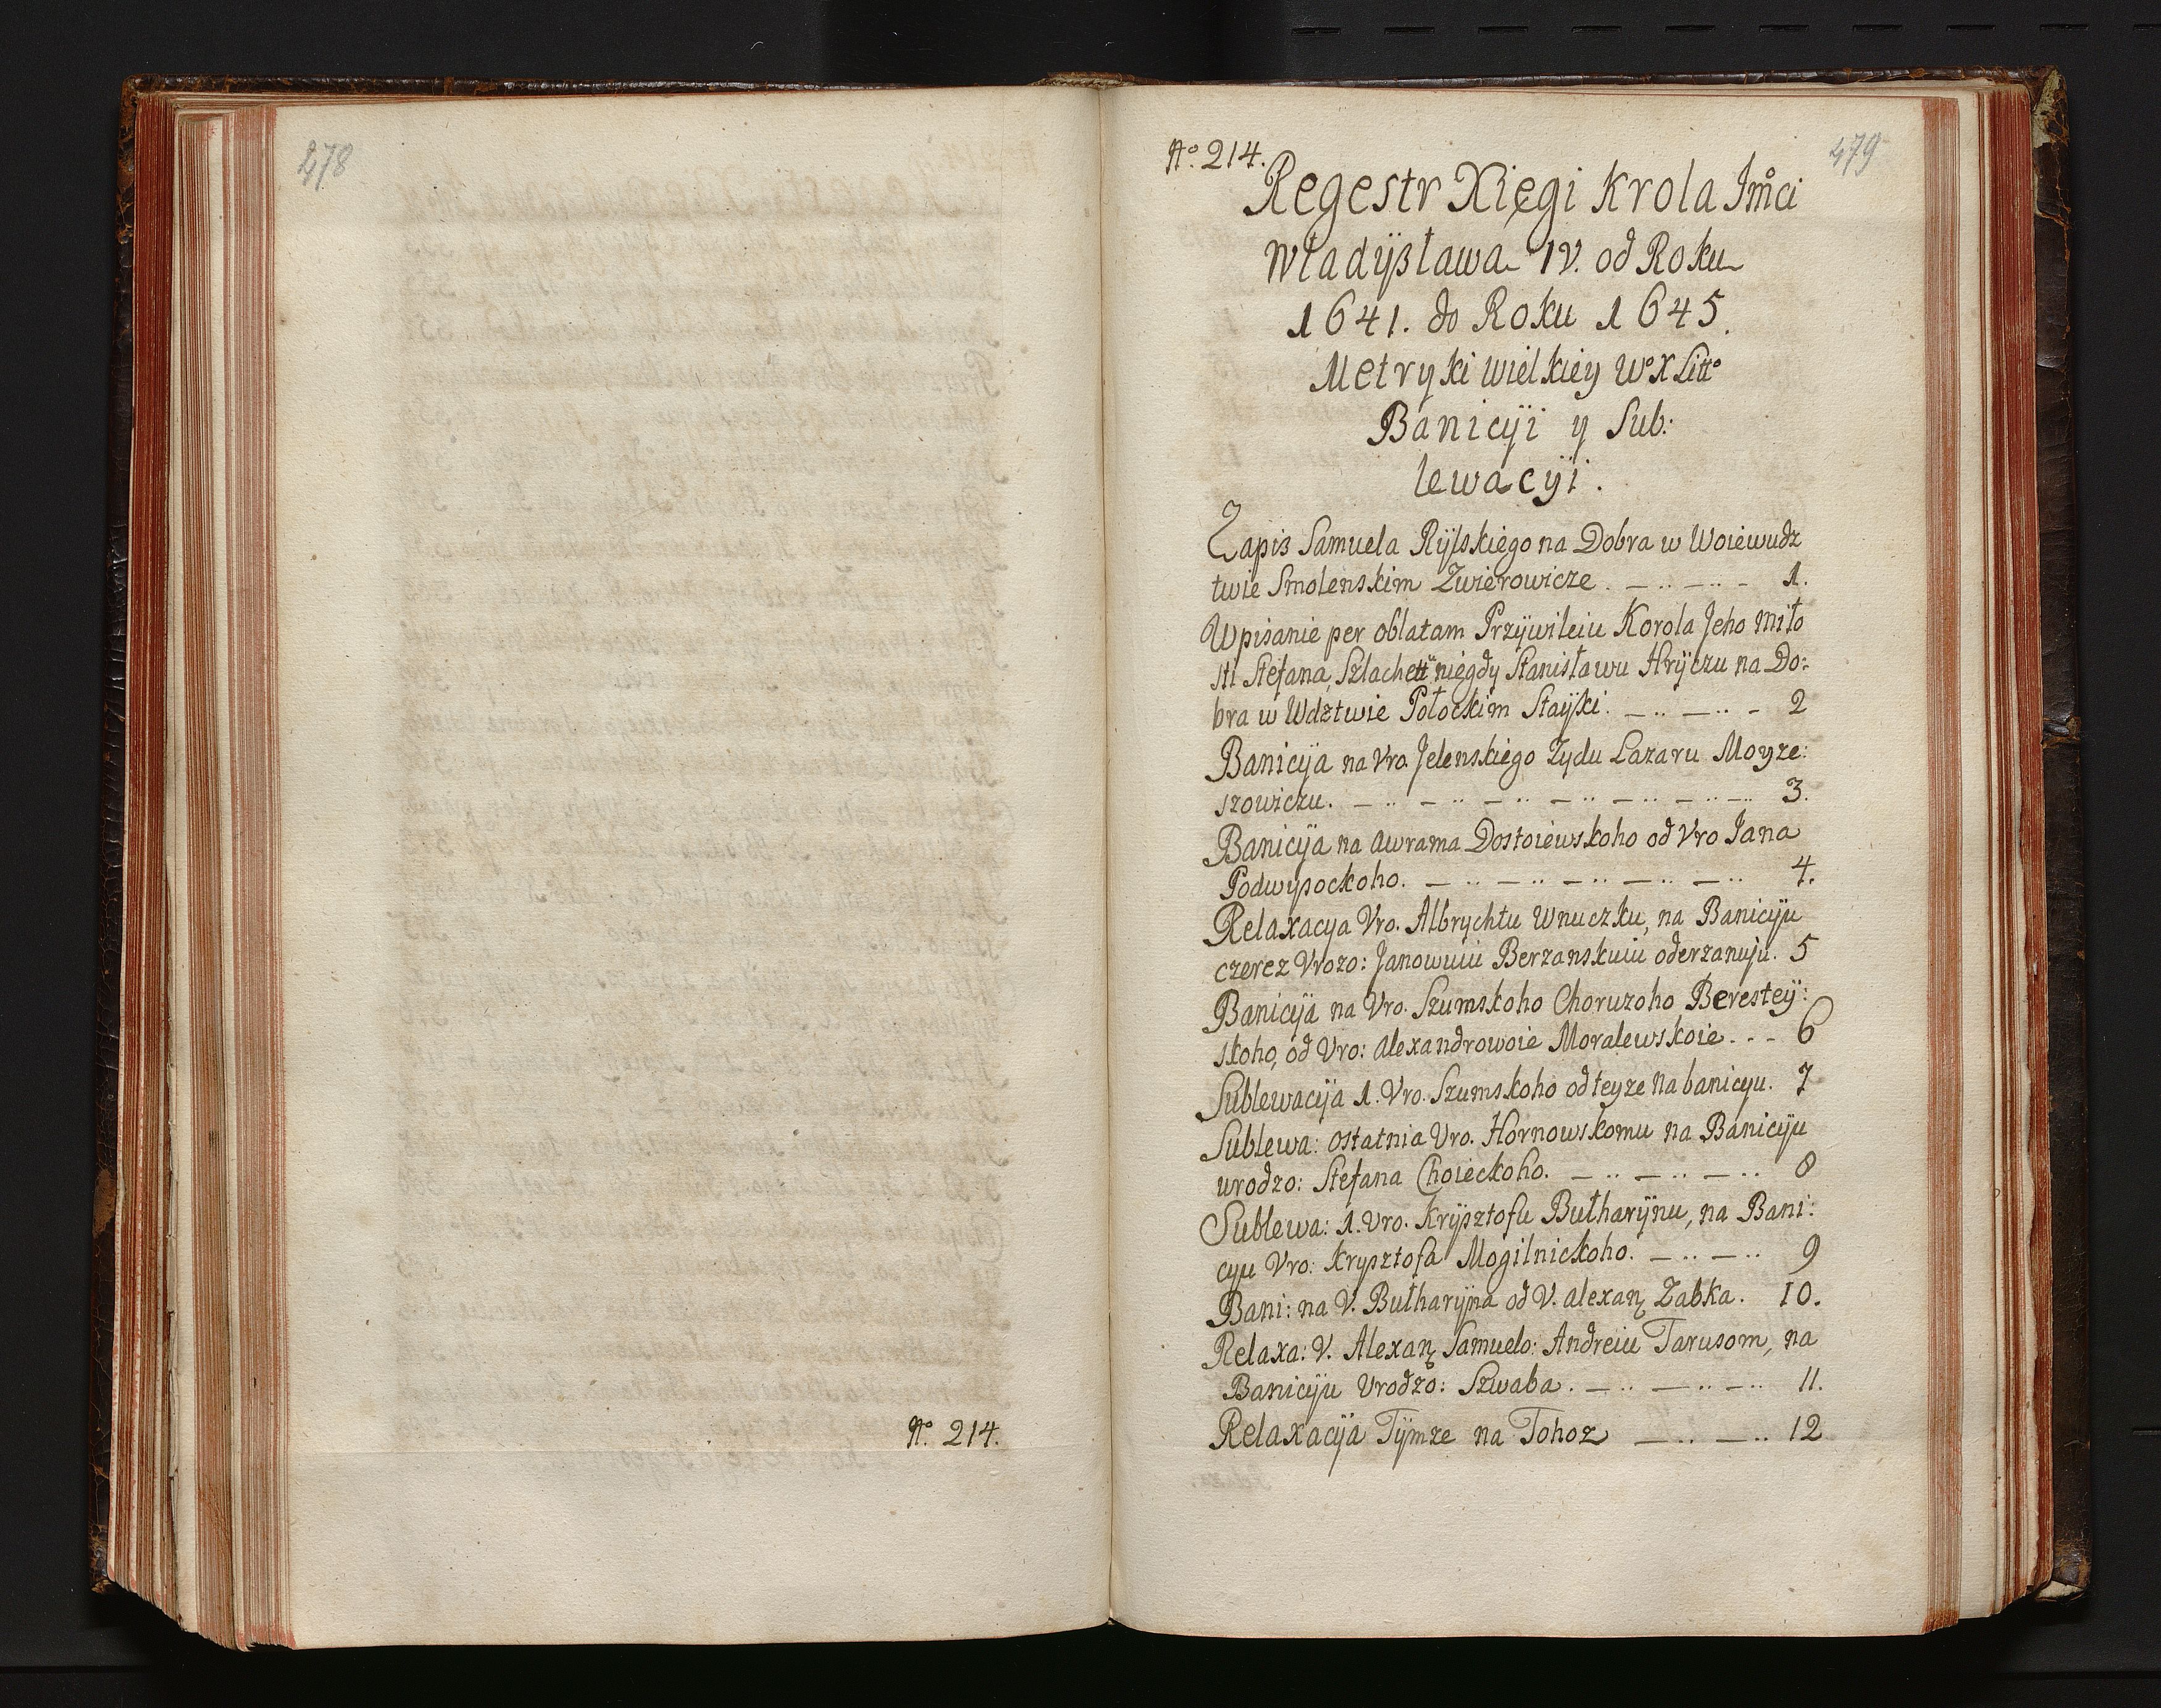 478
No. 214.
479
No. 214.
Regestr Xięgi Krola Jmci
Władÿsława IV. od Roku
1641. do Roku 1645.
Metryki Wielkiey Wo X Litto
Banicÿi y Sub:
lewacÿi.
Zapis Samuela Rÿlskiego na Dobra w Woiewudz
twie Smolenskim Zwierowicze. 1.
Wpisanie per oblatam Przÿwileiu Korola Jeho Miło
sti Stefana, Szlachett niegdy Stanisławu Hrÿczu na Do:
bra w Wdztwie Połockim Staÿki. 2
Banicÿa na Vro. Jelenskiego Zydu Lazaru Moyze:
szowiczu. 3.
Banicÿa na Awrama Dostoiewskoho od Vro Jana
Podwysockoho. 4.
Relaxacya Vro. Albrychtu Wnuczku, na Banicÿu
czerez Vrozo: Janowuiu Berzanskuiu oderzanuju. 5
Banicÿa na Vro. Szumskoho Choruzoho Beresteÿ:
skoho, od Vro: Alexandrowoie Moralewskoie. 6
Sublewacÿa 1. Vro. Szumskoho od teyze na banicyu. 7
Sublewa: ostatnia Vro. Hornowskomu na Banicÿu
urodzo: Stefana Choieckoho. 8
Sublewa: 1. Vro. Krÿsztofu Bułharÿnu, na Bani:
cyu Vro: Krysztofa Mogilnickoho. 9
Bani: na V. Bułharÿna od V. Alexan Zabka. 10.
Relaxa: V. Alexan Samuelo: Andreiu Tarusom, na
Banicÿu Vrodzo: Szwaba. 11.
Relaxacÿa Tÿmze na Tohoz 12